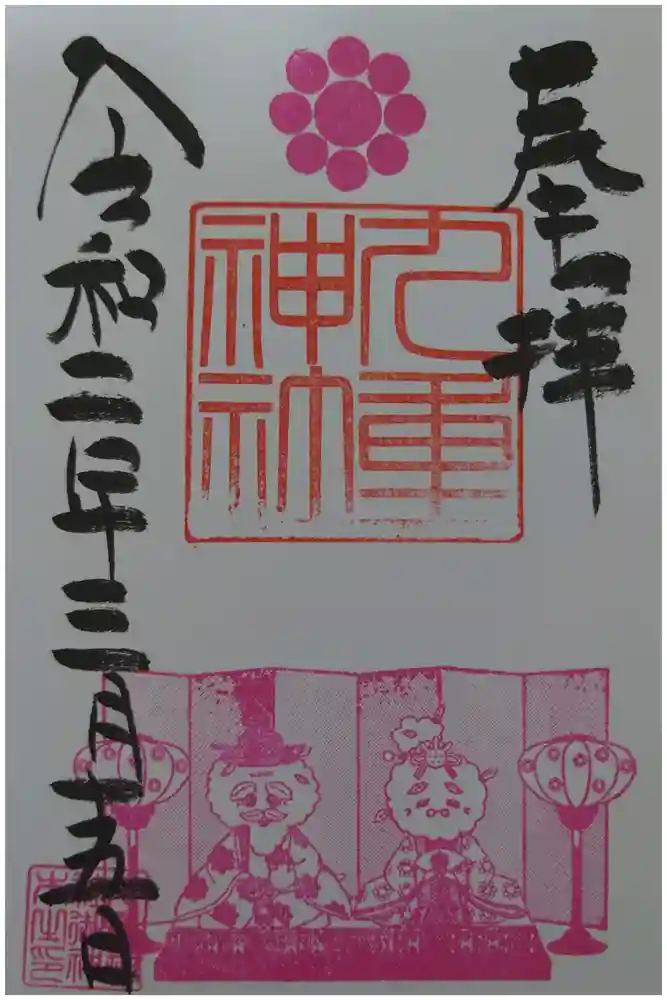 奉拝
九重
神社
令和二年三月十五日